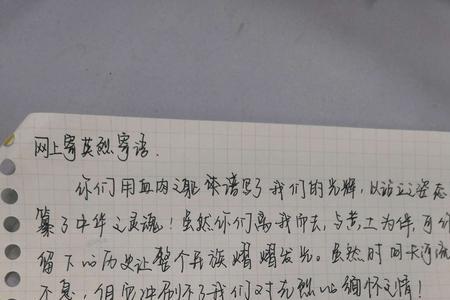 网上寄英烈寄语.
你们用血肉之躯谱写了我们的光辉,以站立之姿态
篆了中华之灵魂!虽然你们离我而去,与黄土为伴,可你
留下的历史让整个民族熠熠发光。虽然时间长河流
不息,但它冲刷不了我们对先烈的缅怀之情!